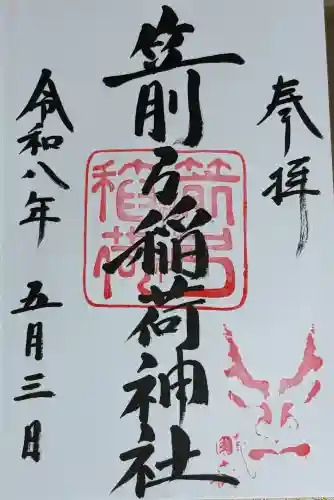 奉拝
箭弓稲荷神社
令和八年 五月三日
箭弓
稲荷